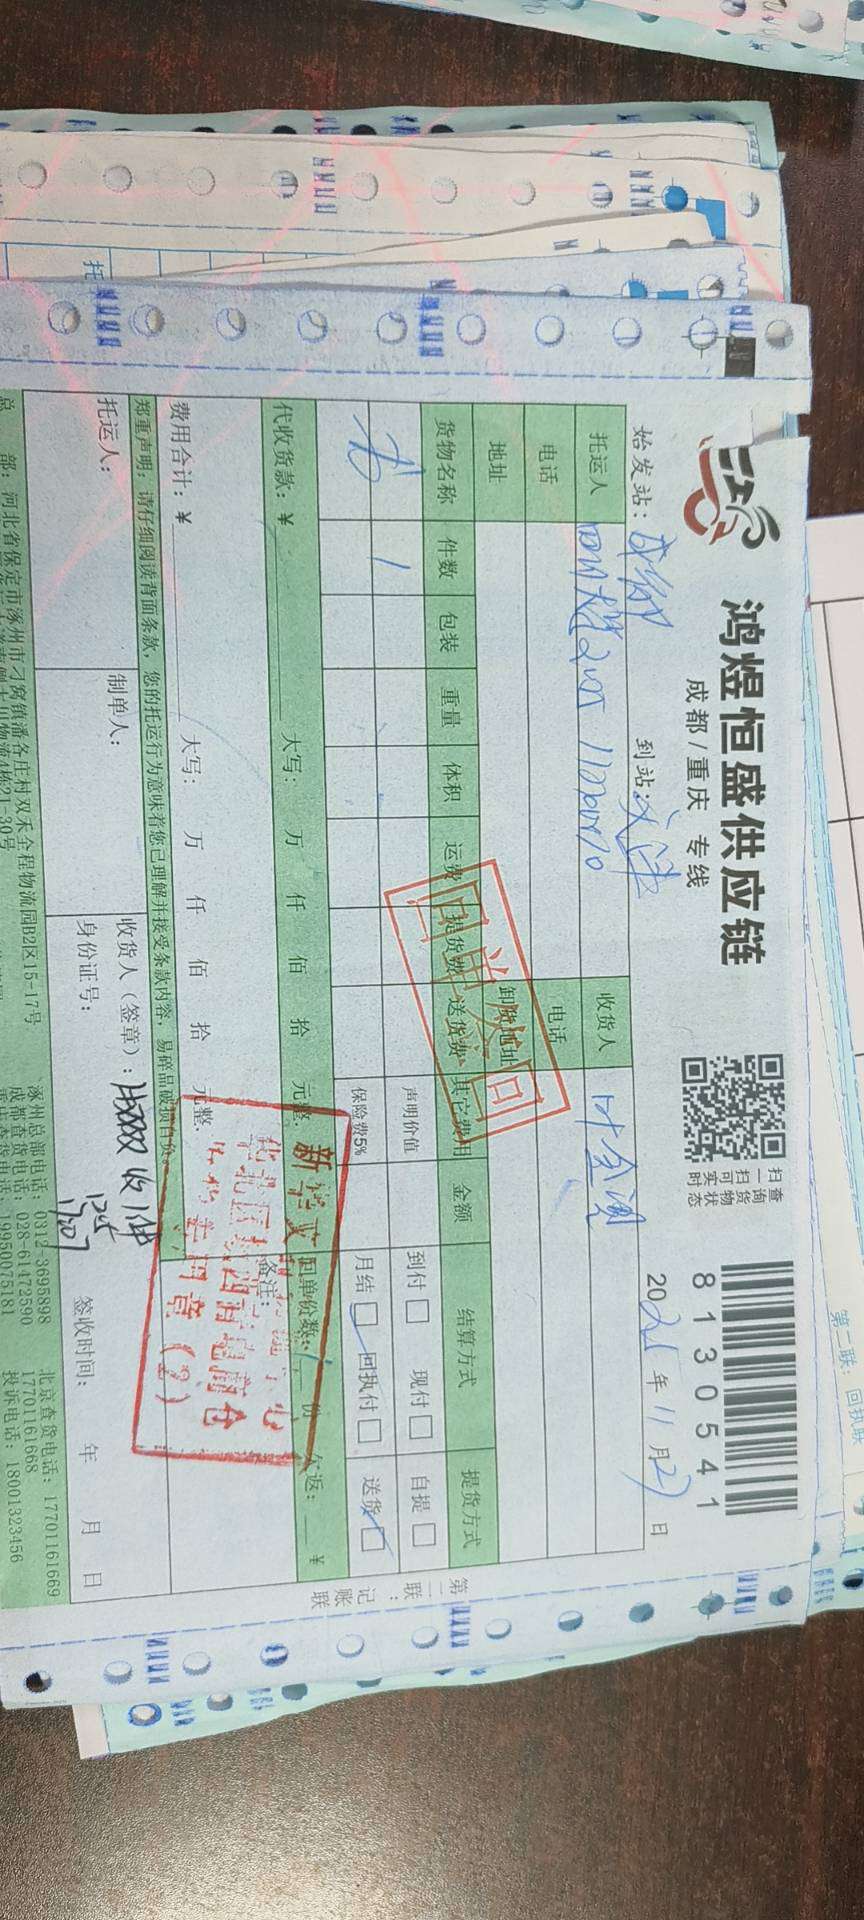 鸿煜恒盛供应链
成都/重庆 专线
扫一扫 查询货物实时状态 可
8130541
始发站：成都 到站：天津 2021年11月27日
托运人 收货人
电话 电话
地址 卸货地址
货物名称 件数 包装 重量 体积 运费 提货费 送货费 其它费用 金额 结算方式 提货方式
书 1 声明价值 到付 现付 自提
保险费5% 月结 回执付 送货
代收货款：¥ 大写： 万 仟 佰 拾 元整 回单份数： 份 欠返： ¥
费用合计：¥ 大写： 万 仟 佰 拾 元整. 备注：
郑重声明：请仔细阅读背面条款，您的托运行为意味着您已理解并接受条款内容，易碎品破损自负。
托运人： 制单人： 收货人（签章）： 收1件
身份证号： 签收时间： 年 月 日
总 部：河北省保定市涿州市刁窝镇潘各庄村双禾全程物流园B2区15-17号
涿州总部电话：0312-3695898 北京查货电话：17701161669
成都查货电话：028-61472590 17701161668
重庆查货电话：19950075181 投诉电话：18001323456
第二联：记账联
新华文
专用章(2)
第二联：回执联